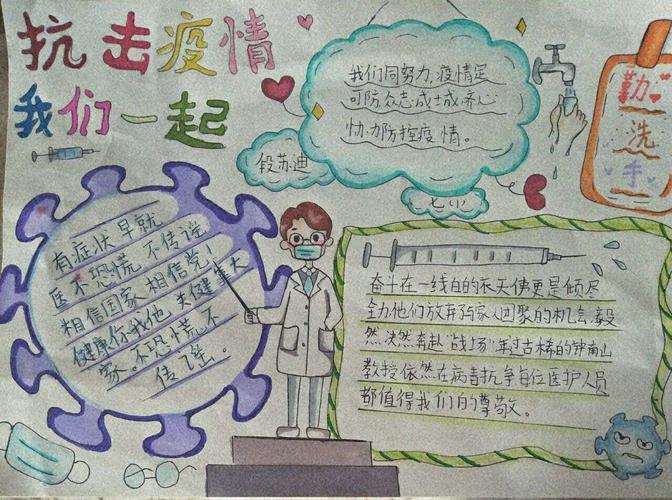 抗击疫情
我们一起
我们同努力,疫情定
可防众志成城齐心
协力防控疫情。
段苏迪
七小
勤
洗
手
有症状早就
医不恐慌 不传说
相信国家相信党!
健康你我他 关健靠大
家。不恐慌不
传谣。
奋斗在一线白的衣天使更是倾尽
全力他们放弃和家人团聚的机会毅
然决然奔赴"战场"年过古稀的钟南山
教授依然在病毒抗争每位医护人员
都值得我们的尊敬。